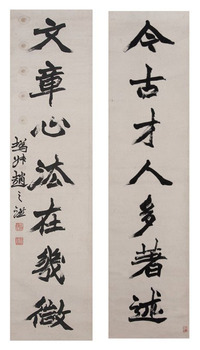 今古才人多著述
文章心法在幾微
趙之謙